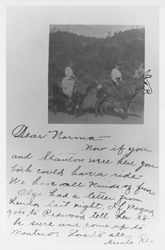 Dear Norma—
Now if you
and Stanton were here you
both could have a ride
We have all kinds of fun
Olga had a letter from
last night. If
goes to Redwood tell her to
be sure and come up to
Love to all